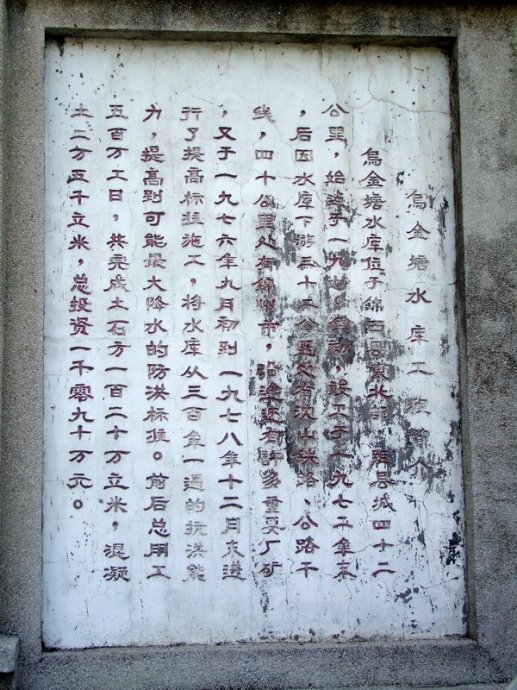 乌金塘水库工程简介
乌金塘水库位于锦西县东北部,距县城四十二
公里,始建于一九年动,竣工于一九七二年末
,后因水库下游三十二公里处有沈山铁路、公路干
线,四十公里处有锦州市,沿途还有许多重要厂矿
,又于一九七六年九月初到一九七八年十二月末进
行了提高标准施工,将水库从三百年一遇的抗洪能
力,提高到可能最大降水的防洪标准。前后总用工
五百万工日,共完成土石方一百二十万立米,混凝
土二万五千立米,总投资一千零九十万元。